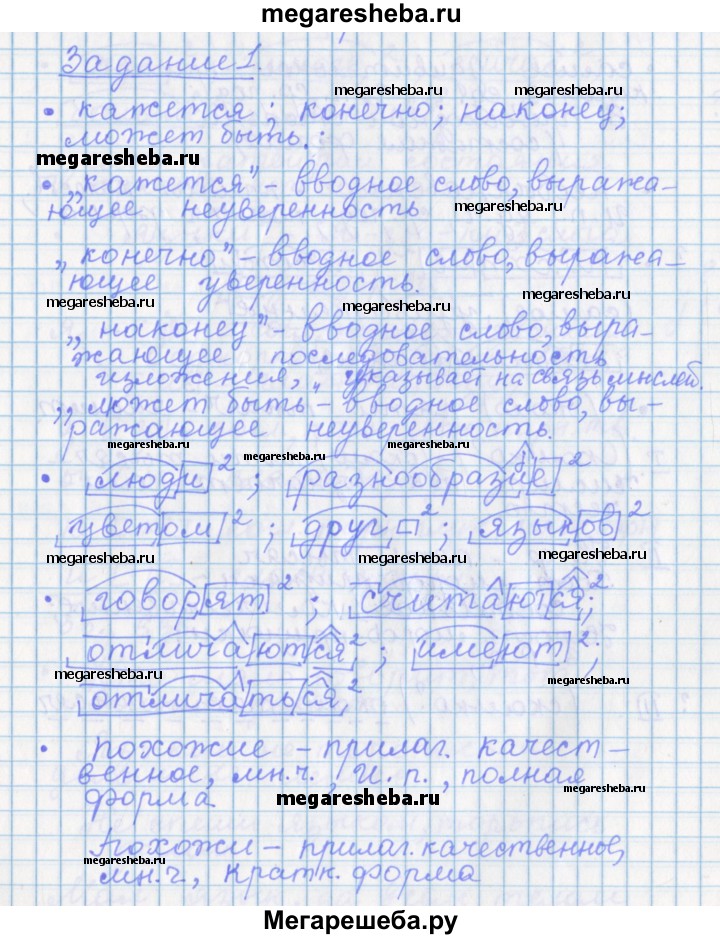 megaresheba.ru
Задание 1.
megaresheba.ru megaresheba.ru
• кажется; конечно; наконец;
может быть. :
megaresheba.ru
• „кажется" - вводное слово, выража-
ющее неуверенность megaresheba.ru
„конечно" - вводное слово, выража-
ющее уверенность.
megaresheba.ru megaresheba.ru megaresheba.ru
„наконец" - вводное слово, выра-
жающее последовательность
изложения, указывает на связь мыслей.
„может быть - вводное слово, вы-
ражающее неуверенность.
megaresheba.ru megaresheba.ru megaresheba.ru
• люди 2 ; разнообразие 2
цветом 2 ; друг 2 ; языков 2
megaresheba.ru megaresheba.ru megaresheba.ru
• говорят 2 ; считаются 2;
отличаются 2 ; имеют 2;
megaresheba.ru megaresheba.ru
отличаться 2
• похожие - прилаг. качест-
венное, мн.ч., И. п., полная
megaresheba.ru
форма megaresheba.ru
похожи - прилаг. качественное,
megaresheba.ru
мн.ч., кратк. форма
Мегарешеба.ру